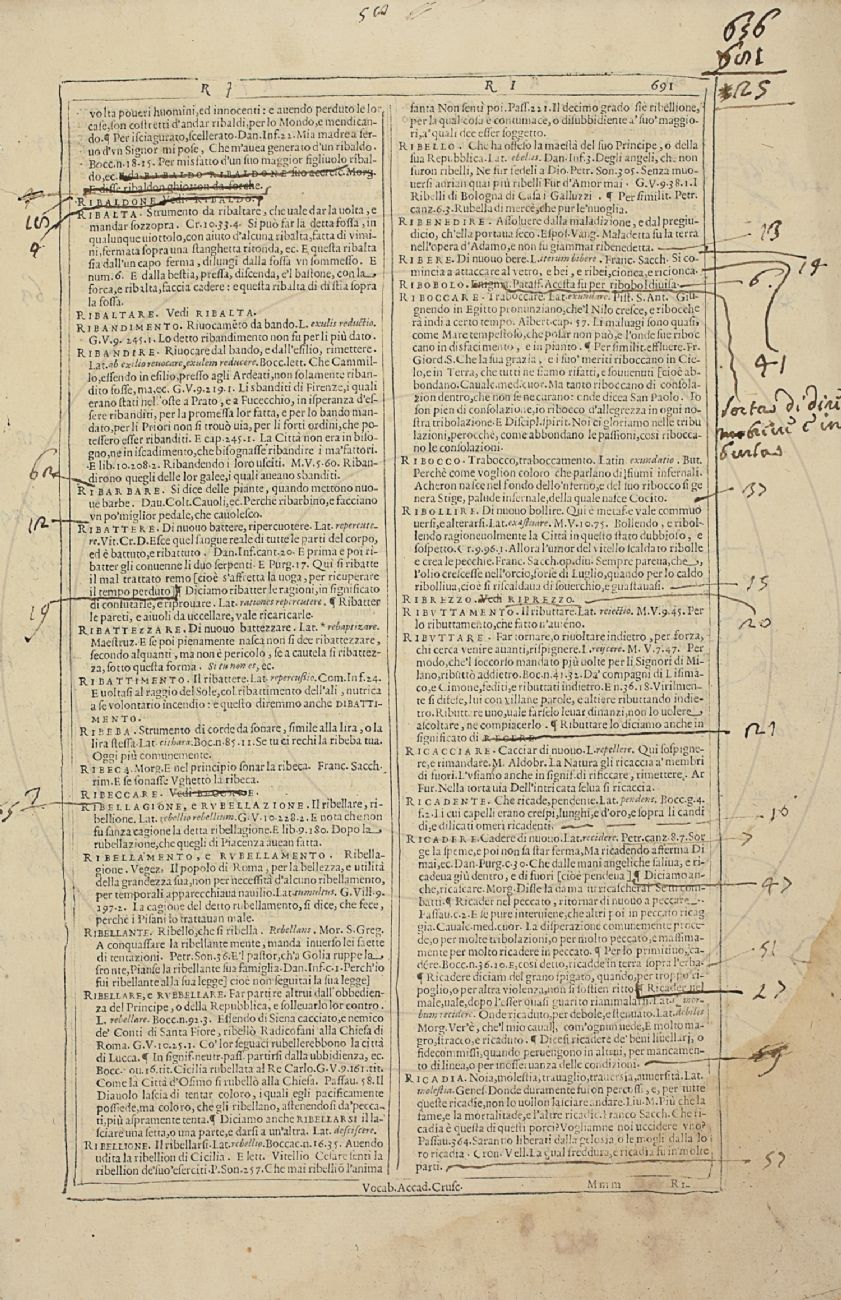 508
636
691
R I
R I
691
25
volta poueri huomini, ed innocenti: e auendo perduto le lor
case, son costretti d'andar ribaldi, per lo Mondo, e mendican-
do. ¶ Per isciagurato, scellerato. Dan. Inf. 22. Mia madre a ser-
uo d'vn Signor mi pose, Che m'auea generato d'vn ribaldo.
Bocc. n. 18. 15. Per misfatto d'un suo maggior figliuolo ribal-
do, ec.
RIBALDONE. Vedi RIBALDO.
RIBALTA. Strumento da ribaltare, che uale dar la uolta, e
mandar sozzopra. Cr. 10. 33. 4. Si può far la detta fossa, in
qualunque uiottolo, con aiuto d'alcuna ribalta, fatta di vimi-
ni, fermata sopra una stanghetta ritonda, ec. E questa ribalta
sia dall'un capo ferma, di lungi dalla fossa vn sommesso. E
num. 6. E dalla bestia, pressa, discenda, e'l bastone, con la
forca, e ribalta, faccia cadere: e questa ribalta di distia sopra
la fossa.
RIBALTARE. Vedi RIBALTA.
RIBANDIMENTO. Riuocamēto da bando. L. exulis reductio.
G. V. 9. 245. 1. Lo detto ribandimento non fu per li più dato.
RIBANDIRE. Riuocare dal bando, e dall'esilio, rimettere.
Lat. ab exilio reuocare, exulem reducere. Bocc. lett. Che Cammil-
lo, essendo in esilio, presso agli Ardeati, non solamente riban-
dito fosse, ma, ec. G. V. 9. 219. 1. Li sbanditi di Firenze, i quali
erano stati nell'oste a Prato, e a Fucecchio, in isperanza d'es-
sere ribanditi, per la promessa lor fatta, e per lo bando man-
dato, per li Priori non si trouò uia, per li forti ordini, che po-
tessero esser ribanditi. E cap. 245. 1. La Città non era in biso-
gno, ne in iscadimento, che bisognasse ribandire i ma'fattori.
E lib. 10. 208. 2. Ribandendo i loro usciti. M. V. 5. 60. Riban-
dirono quegli delle lor galee, i quali aueano sbanditi.
RIBARBARE. Si dice delle piante, quando mettono nuo-
ue barbe. Dau. Colt. Cauoli, ec. Perchè ribarbino, e facciano
vn po'miglior pedale, che cauolesco.
RIBATTERE. Di nuouo battere, ripercuotere. Lat. repercute-
re. Vit. Cr. D. Esce quel sangue reale di tutte le parti del corpo,
ed è battuto, e ribattuto. Dan. Inf. cant. 20. E prima e poi ri-
batter gli conuenne li duo serpenti. E Purg. 17. Qui si ribatte
il mal trattato remo [cioè s'affretta la uoga, per ricuperare
il tempo perduto] ¶ Diciamo ribatter le ragioni, in significato
di confutarle, e riprouare. Lat. rationes repercutere. ¶ Ribatter
le pareti, e aiuoli da uccellare, vale ricaricarle.
RIBATTEZZARE. Di nuouo battezzare. Lat. * rebaptizare.
Maestruz. E se poi pienamente nasca non si dee ribattezzare,
secondo alquanti, ma non è pericolo, se a cautela si ribattez-
za, sotto questa forma. Si tu non es, ec.
RIBATTIMENTO. Il ribattere. Lat. repercussio. Com. Inf. 24.
E uoltasi al raggio del Sole, col ribattimento dell'ali, nutrica
a se volontario incendio: e questo diremmo anche DIBATTI-
MENTO.
RIBEBA. Strumento di corde da sonare, simile alla lira, o la
lira stessa. Lat. cithara. Bocc. n. 85. 11. Se tu ci rechi la ribeba tua.
Oggi più comunemente.
RIBECA. Morg. E nel principio sonar la ribeca. Franc. Sacch.
rim. E se sonasse Vghetto la ribeca.
RIBECCARE. Vedi
RIBELLAGIONE, e RVBELLAZIONE. Il ribellare, ri-
bellione. Lat. rebellio rebellium. G. V. 10. 228. 2. E nota che non
fu sanza cagione la detta ribellagione. E lib. 9. 180. Dopo la
rubellazione, che quegli di Piacenza aueàn fatta.
RIBELLAMENTO, e RVBELLAMENTO. Ribella-
gione. Vegez. Il popolo di Roma, per la bellezza, e utilità
della grandezza sua, non per necessità d'alcuno ribellamento,
per temporali apparecchiaua nauilio. Lat. tumultus. G. Vill. 9.
197. 2. La cagione del detto rubellamento, si dice, che fece,
perchè i Pisani lo trattauan male.
RIBELLANTE. Ribello, che si ribella. Rebellans. Mor. S. Greg.
A conquassare la ribellante mente, manda inuerso lei saette
di tentazioni. Petr. Son. 36. E'l pastor, ch'a Golia ruppe la
fronte, Pianse la ribellante sua famiglia. Dan. Inf. c. 1. Perch'io
fui ribellante alla sua legge [cioè non seguitai la sua legge]
RIBELLARE, e RVBELLARE. Far partire altrui dall'obbedien-
za del Principe, o della Repubblica, e solleuarlo lor contro.
L. rebellare. Bocc. n. 92. 3. Essendo di Siena cacciato, e nemico
de' Conti di Santa Fiore, ribellò Radicofani alla Chiesa di
Roma. G. V. 10. 25. 1. Co' lor seguaci rubellerebbono la città
di Lucca. ¶ In signif. neutr. pass. partirsi dalla ubbidienza, ec.
Bocc. nou. 16. tit. Cicilia rubellata al Re Carlo. G. V. 9. 161. tit.
Come la Città d'Osimo si rubellò alla Chiesa. Passau. 58. Il
Diauolo lascia di tentar coloro, i quali egli pacificamente
possiede, ma coloro, che gli ribellano, astenendosi da'pecca-
ti, più aspramente tenta. ¶ Diciamo anche RIBELLARSI il la-
sciare una setta, o una parte, e darsi a un'altra. Lat. desciscere.
RIBELLIONE. Il ribellarsi. Lat. rebellio. Boccac. n. 16. 35. Auendo
udita la ribellion di Cicilia. E lett. Vitellio Cesare senti la
ribellion de'suo'eserciti. P. Son. 257. Che mai ribellion l'anima
santa Non sentì poi. Pass. 221. Il decimo grado si è ribellione,
per la qual cosa è contumace, o disubbidiente a' suo' maggio-
ri, a' quali dee esser soggetto.
RIBELLO. Che ha offeso la maestà del suo Principe, o della
sua Repubblica. Lat. rebelles. Dan. Inf. 3. Degli angeli, che non
furon ribelli, Ne fur fedeli a Dio. Petr. Son. 305. Senza muo-
uersi adrian quai più ribelli Fur d'Amor mai. G. V. 9. 38. 1. I
Ribelli di Bologna di Casa i Galluzzi. ¶ Per similit. Petr.
canz. 6. 3. Rubella di mercè, che pur le 'nuoglia.
RIBENEDIRE. Assoluere dalla maladizione, e dal pregiu-
dicio, ch'ella portaua seco. Espos. Vang. Maladetta fu la terra
nell'opera d'Adamo, e non fu giammar ribenedetta.
RIBERE. Di nuouo bere. L. iterum bibere. Franc. Sacch. Si co-
mincia a attaccare al vetro, e bei, e ribei, cionca, e ricionca.
RIBOBOLO. Enigma. Pataff. Acesta fu per ribobol diuisa.
RIBOCCARE. Traboccare. Lat. exundare. Pist. S. Ant. Giu-
gnendo in Egitto pronunziano, che'l Nilo cresce, e ribocche
rà indi a certo tempo. Albert. cap. 57. Li maluagi sono quasi,
come Mare tempestoso, che posar non può, e l'onde sue riboc
cano in disfacimento, e in pianto. ¶ Per similit. effluere. Fr.
Giord. S. Che la sua grazia, e i suo' meriti riboccano in Cie-
lo, e in Terra, che tutti ne siamo rifatti, e souuenuti [cioè ab-
bondano. Caualc. med. cuor. Ma tanto riboccano di consola-
zion dentro, che non se ne curano: onde dicea San Paolo. Io
son pien di consolazione, io ribocco d'allegrezza in ogni no-
stra tribolazione. E Discipl. spirit. Noi ci gloriamo nelle tribu
lazioni, perocchè, come abbondano le passioni, così ribocca-
no le consolazioni.
RIBOCCO. Trabocco, traboccamento. Latin. exundatio. But.
Perchè come voglion coloro che parlano di fiumi infernali.
Acheron nasce nel fondo dello'nferno, e del suo ribocco si ge
nera Stige, palude infernale, della quale nasce Cocito.
RIBOLLIRE. Di nuouo bollire. Qui è metaf. e vale commuo
uersi, e alterarsi. Lat. exæstuare. M. V. 10. 75. Bollendo, e ribol-
lendo ragioneuolmente la Città in questo stato dubbioso, e
sospetto. Cr. 9. 96. 1. Allora l'umor del vitello scaldato ribolle
e crea le pecchie. Franc. Sacch. op. diu. Sempre pareua, che
l'olio crescesse nell'orcio, forse di Luglio, quando per lo caldo
ribolliua, cioè si riscaldaua di souerchio, e guastauasi.
RIBREZZO. Vedi RIPREZZO.
RIBVTTAMENTO. Il ributtare. Lat. reiectio. M. V. 9. 45. Per
lo ributtamento, che fatto n'aueno.
RIBVTTARE. Far tornare, o riuoltare indietro, per forza,
chi cerca venire auanti, rispignere. L. reijcere. M. V. 7. 47. Per
modo, che'l soccorso mandato più uolte per li Signori di Mi-
lano, ributtò addietro. Boc. n. 41. 32. Da' compagni di Lisima-
co, e Cimone, fediti, e ributtati indietro. E n. 36. 18. Virilmen-
te si difese, lui con villane parole, e altiere ributtando indie-
tro. Ributtare uno, uale farselo leuar dinanzi, non lo uolere
ascoltare, ne compiacerlo. ¶ Ributtare lo diciamo anche in
significato di RECERE
RICACCIARE. Cacciar di nuouo. L. repellere. Qui sospigne-
re, e rimandare. M. Aldobr. La Natura gli ricaccia a' membri
di fuori. L'vsiamo anche in signif. di rificcare, rimettere. Ar
Fur. Nella torta uia Dell'intricata selua si ricaccia.
RICADENTE. Che ricade, pendente. Lat. pendens. Bocc. g. 4.
f. 2. Li cui capelli erano crespi, lunghi, e d'oro, e sopra li candi
di, e dilicati omeri ricadenti.
RICADERE. Cadere di nuouo. Lat. recidere. Petr. canz. 8. 7. Sor
ge la speme, e poi non sa star ferma, Ma ricadendo afferma Di
mai, ec. Dan. Purg. c. 30. Che dalle mani angeliche saliua, e ri-
cadeua giù dentro, e di fuori [cioè pendeua] ¶ Diciamo an-
che, ricalcare. Morg. Disse la dama tu ricascherai Se tu com-
batti. ¶ Ricader nel peccato, ritornar di nuouo a peccare.
Passau. c. 2. E se pure interuiene, che altri poi in peccato ricag
gia. Caualc. med. cuor. La disperazione comunemente proce-
de, o per molte tribolazioni, o per molto peccato, e massima-
mente per molto ricadere in peccato. ¶ Per lo primitiuo, ca-
dére. Bocc. n. 36. 10. E, così detto, ricadde in terra sopra l'erba.
¶ Ricadere diciam del grano spigato, quando, per troppo ri-
poglio, o per altra violenza, non si sostien ritto. ¶ Ricader nel
male, uale, dopo l'esser quasi guarito riammalarsi. Lat. in mor-
bum recidere. Onde ricaduto, per debole, e stenuato. Lat. debiles
Morg. Ver'è, che'l mio cauall, com'ognun uede, E molto ma-
gro, stracco, e ricaduto. ¶ Dicesi ricadere de' beni liuellarj, o
fidecommissi, quando peruengono in altrui, per mancamen-
to di linea, o per inosseruanza delle condizioni.
RICADIA. Noia, molestia, trauaglio, trauersia, auuersità. Lat.
molestia. Genes. Donde duramente furon percossi, e, per tutte
queste ricadie, non lo uollon lasciare andare. Liu. M. Più che la
fame, e la mortalitade, e l'altre ricadie. Franco Sacch. Che ri-
cadia è questa di questi porci? Vogliamne noi uccidere vno?
Passau. 364. Saranno liberati dalla gelosia o le mogli dalla lo
ro ricadia. Cron. Vell. La qual freddura, e ricadia fu in molte
parti.
Vocab. Accad. Crusc.
Mmm
RI-
13
19
6
41
37
15
20
21
16
47
51
27
57
12
19